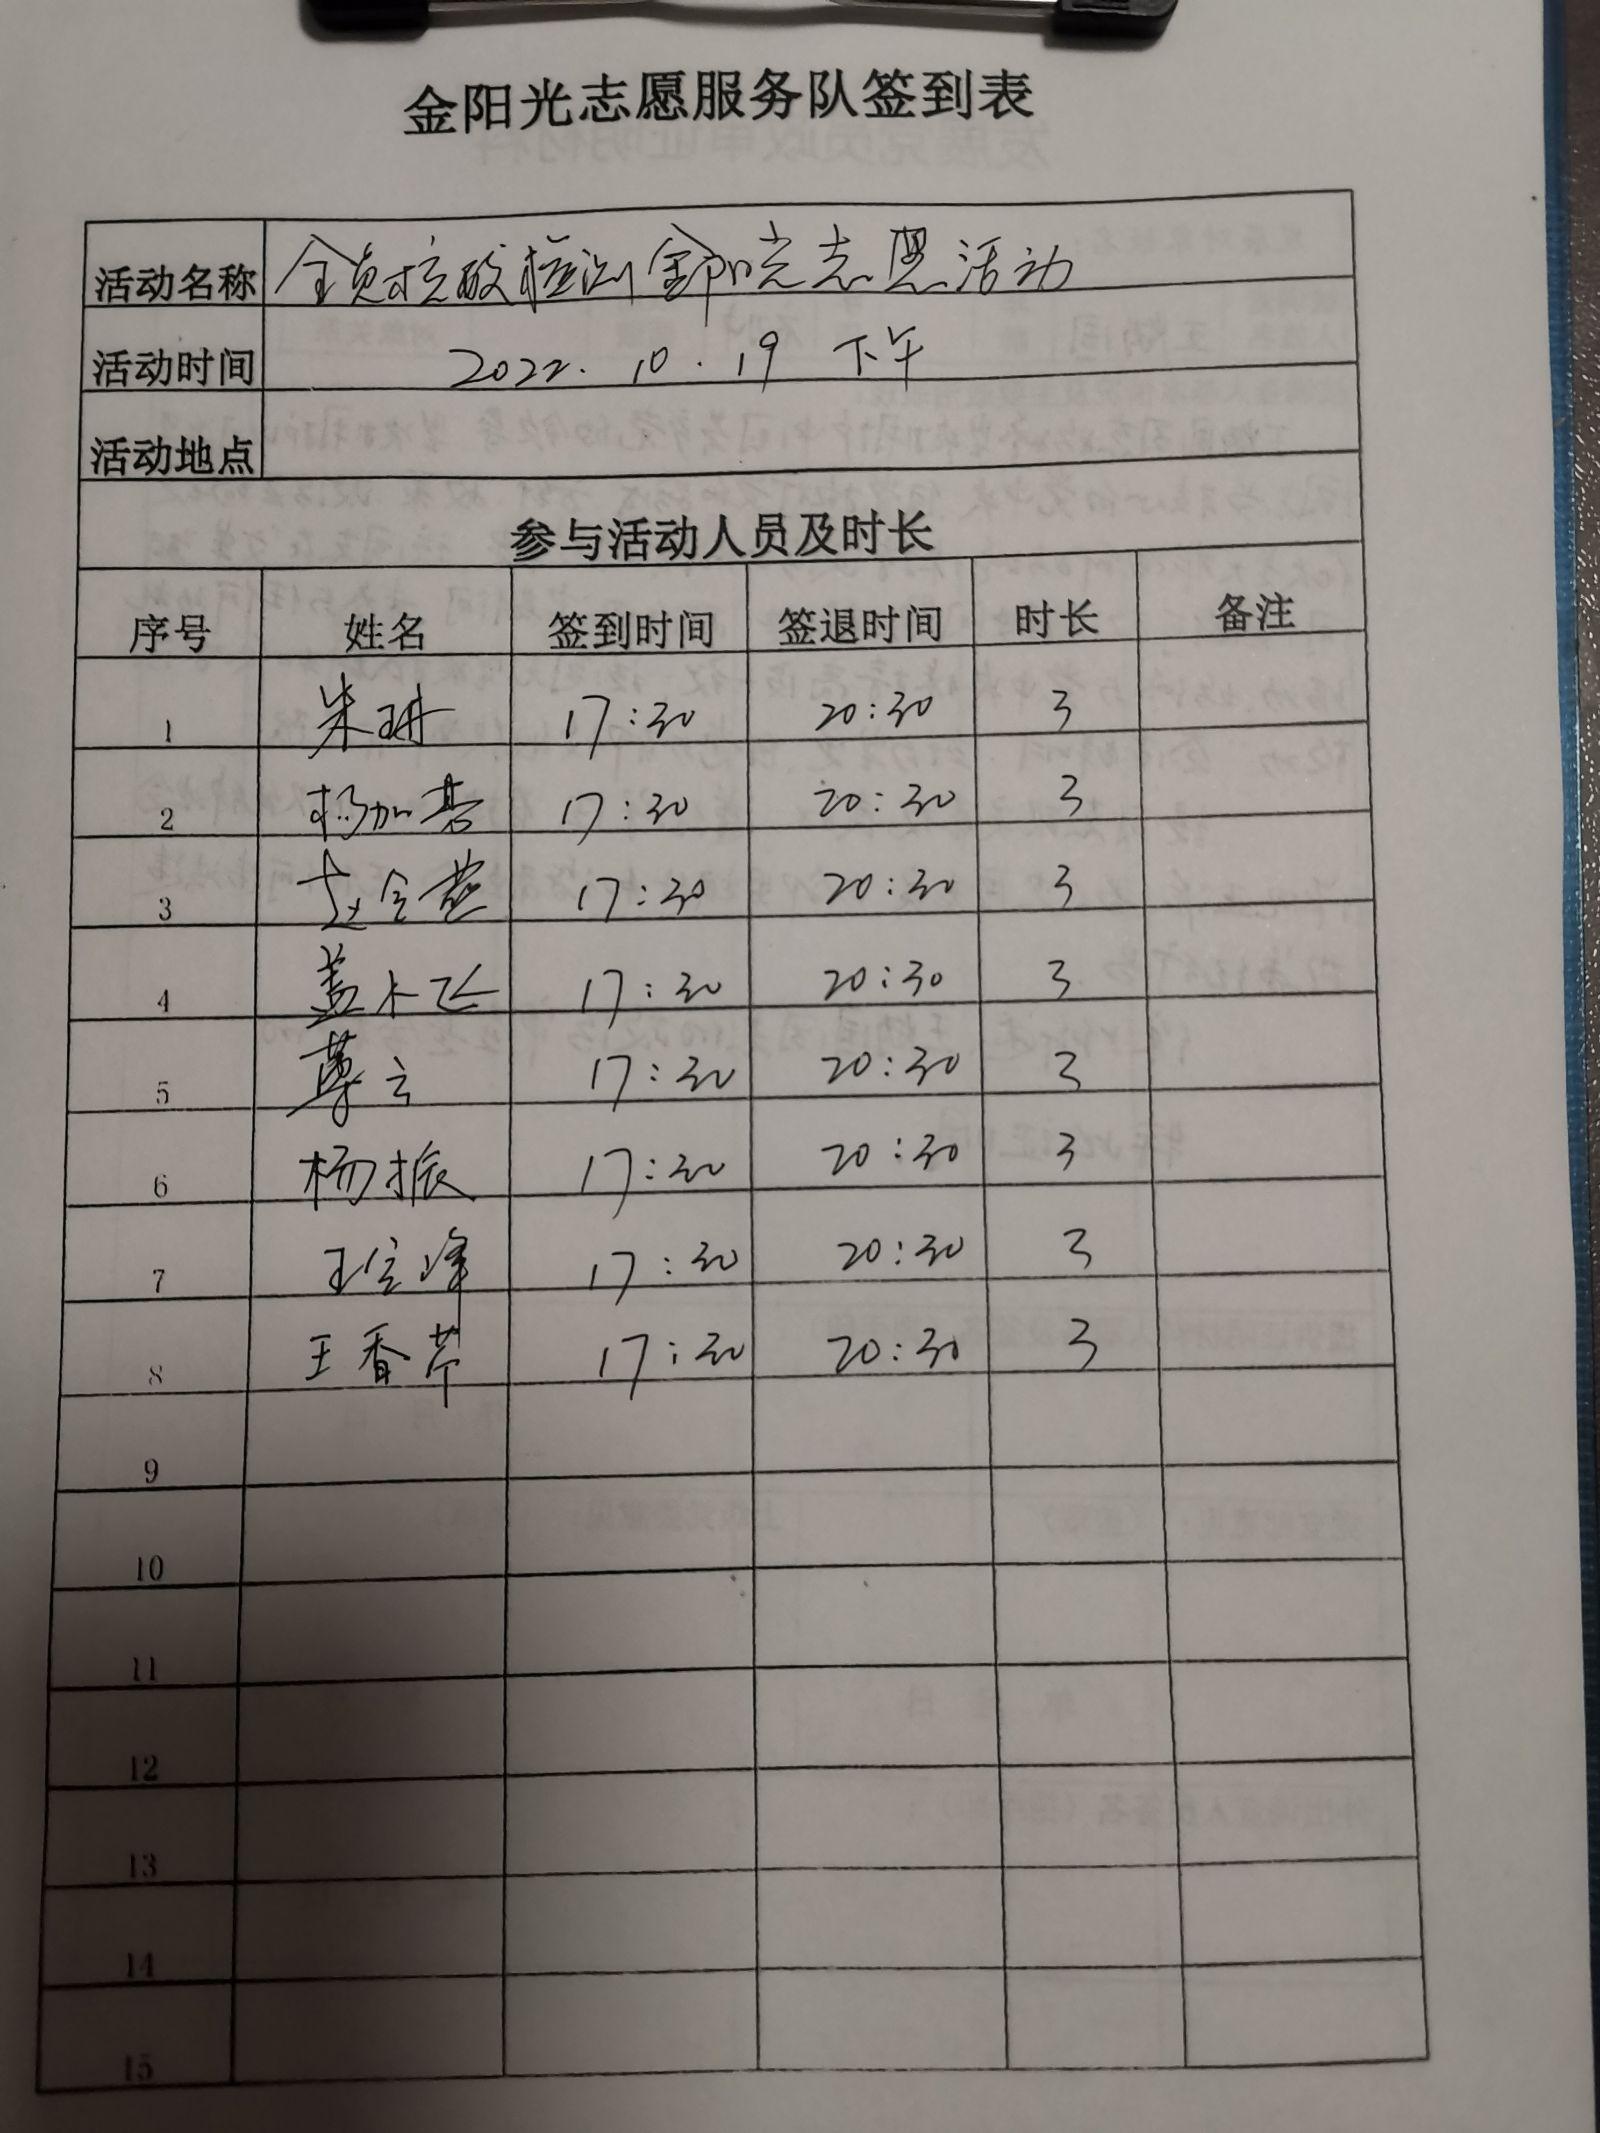 金阳光志愿服务队签到表
活动名称 全员核酸检测金阳光志愿活动
活动时间 2022.10.19 下午
活动地点
参与活动人员及时长
序号 姓名 签到时间 签退时间 时长 备注
1 朱珊 17:30 20:30 3
2 杨加 17:30 20:30 3
3 赵金燕 17:30 20:30 3
4 盖大飞 17:30 20:30 3
5 17:30 20:30 3
6 杨振 17:30 20:30 3
7 王宝峰 17:30 20:30 3
8 王香芹 17:30 20:30 3
9
10
11
12
13
14
15